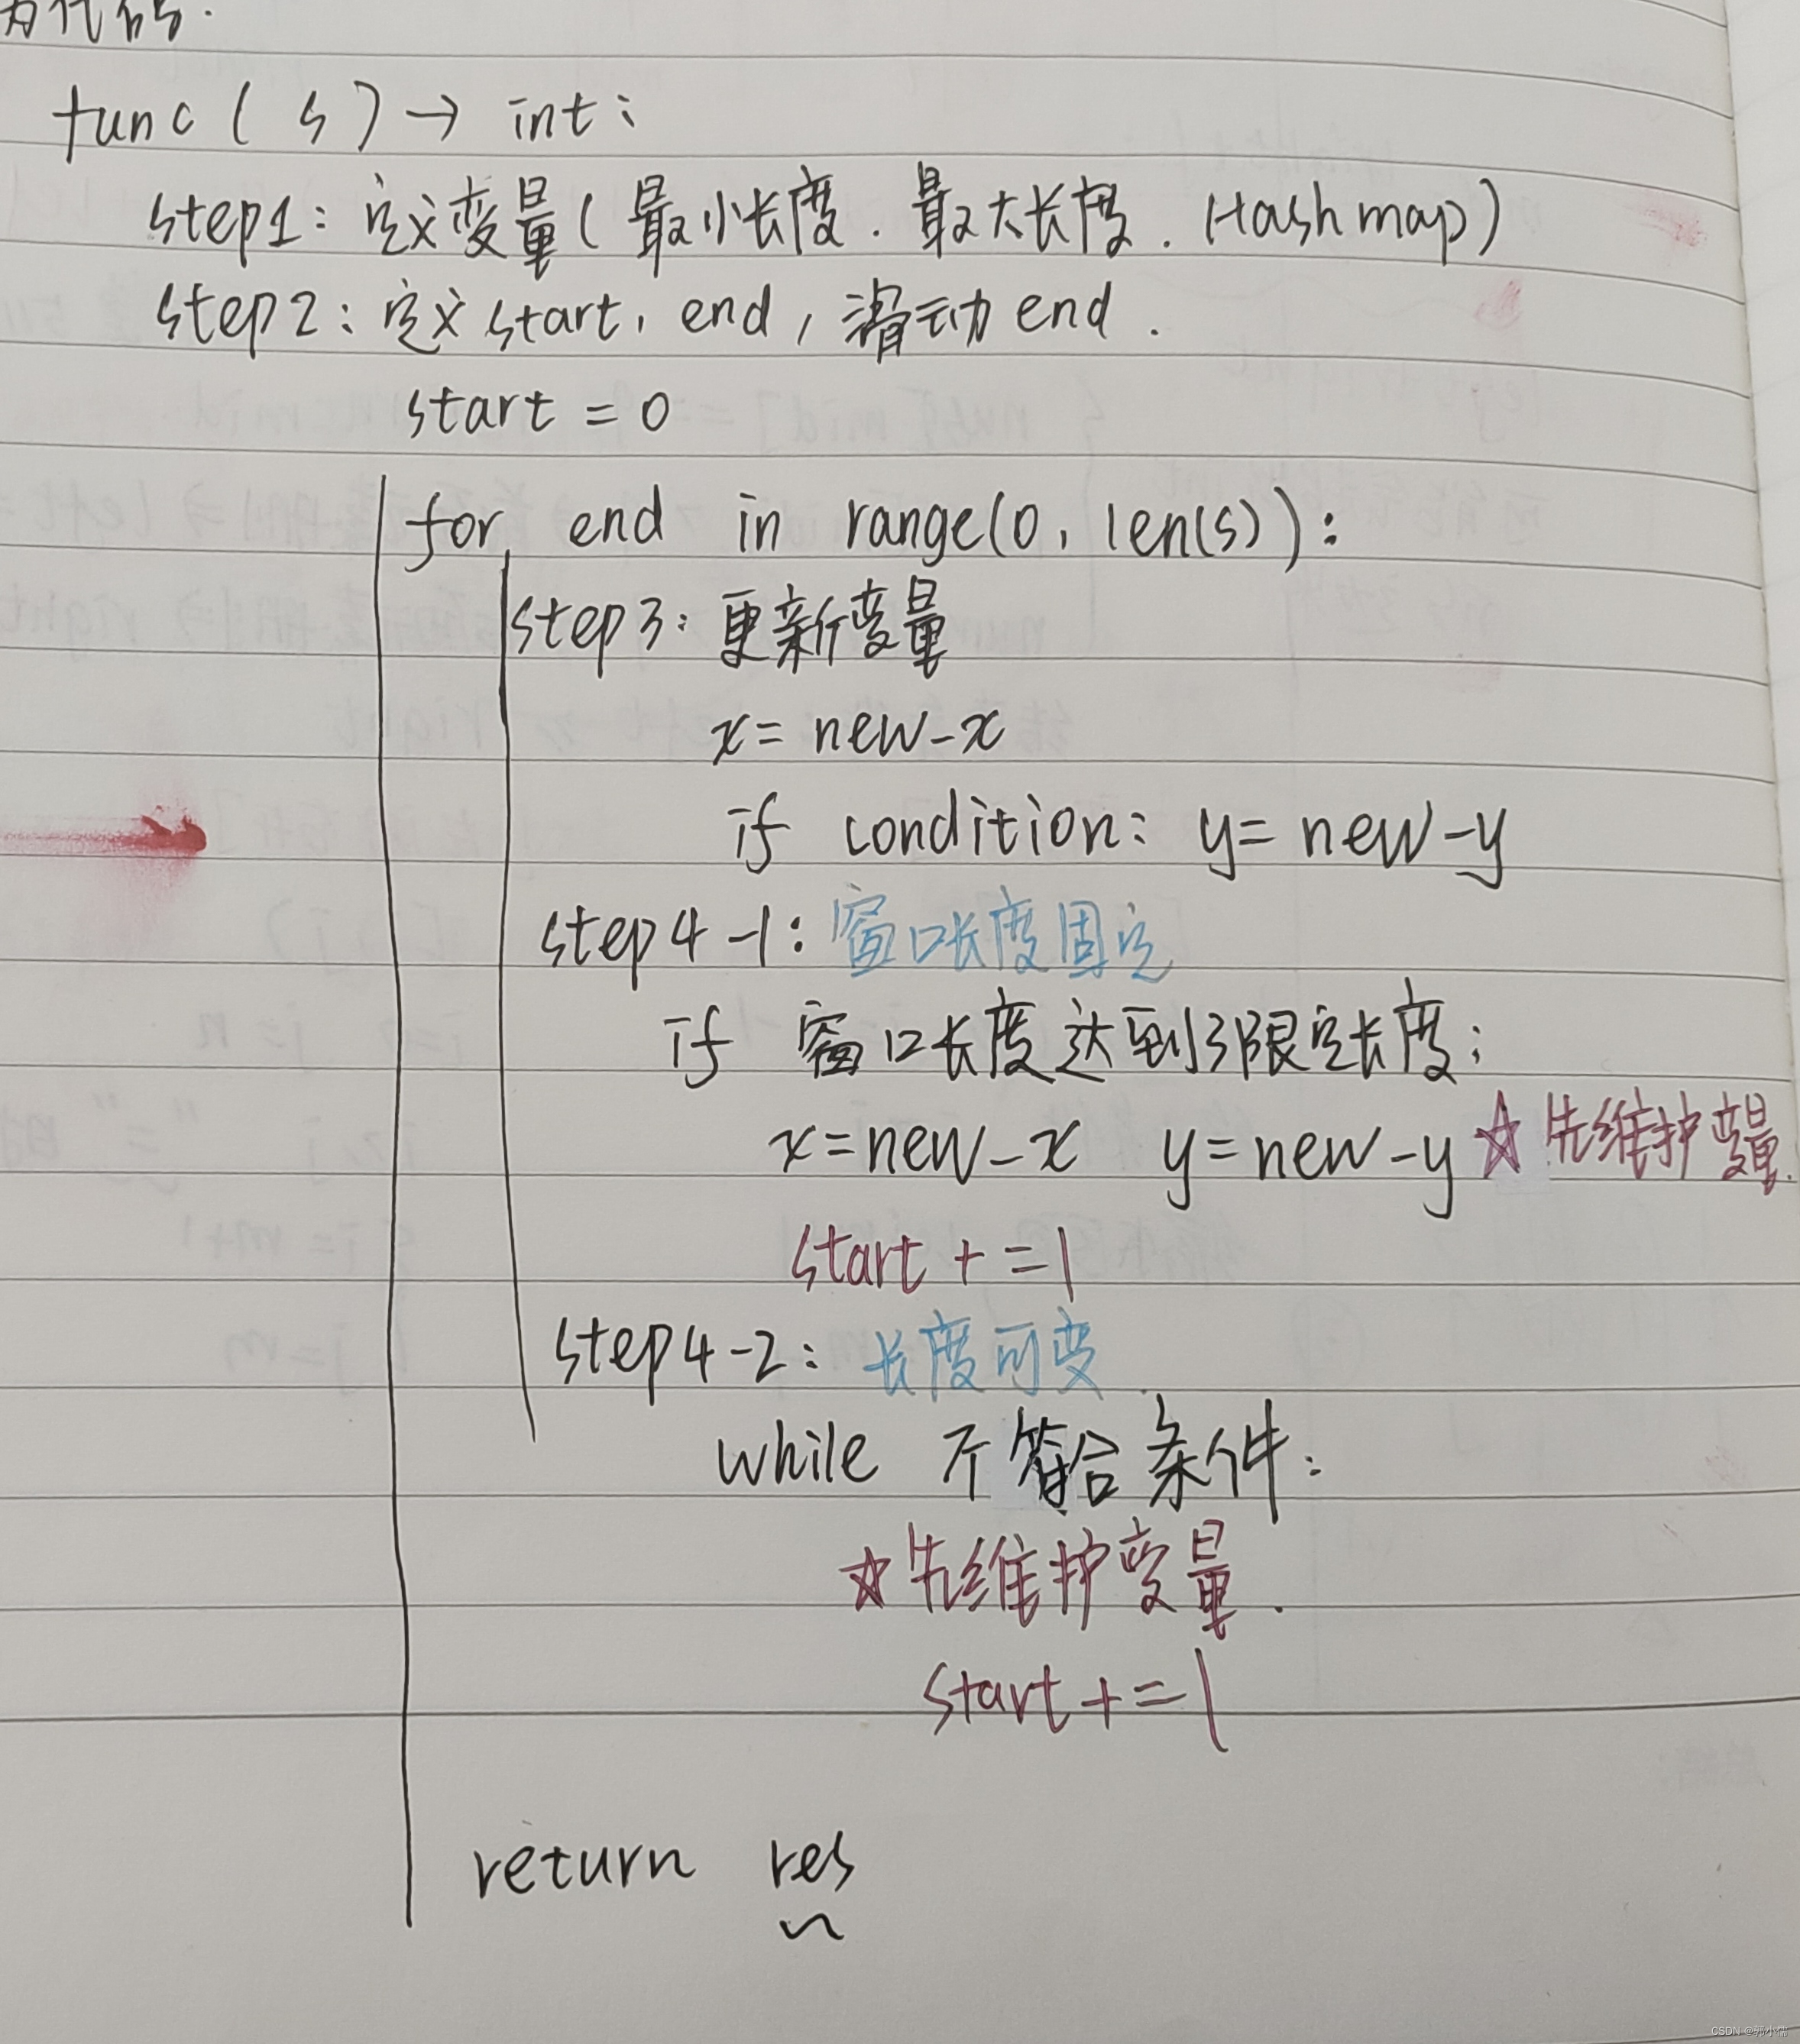 伪代码:
func(s) → int:
step1: 定义变量(最小长度. 最大长度. Hashmap)
step2: 定义start, end, 滑动end.
start = 0
for end in range(0, len(s)):
step3: 更新变量
x = new_x
if condition: y = new_y
step4-1: 窗口长度固定
if 窗口长度达到了限定长度:
x = new_x y = new_y ☆先维护变量.
start += 1
step4-2: 长度可变
while 不符合条件:
☆先维护变量.
start += 1
return res